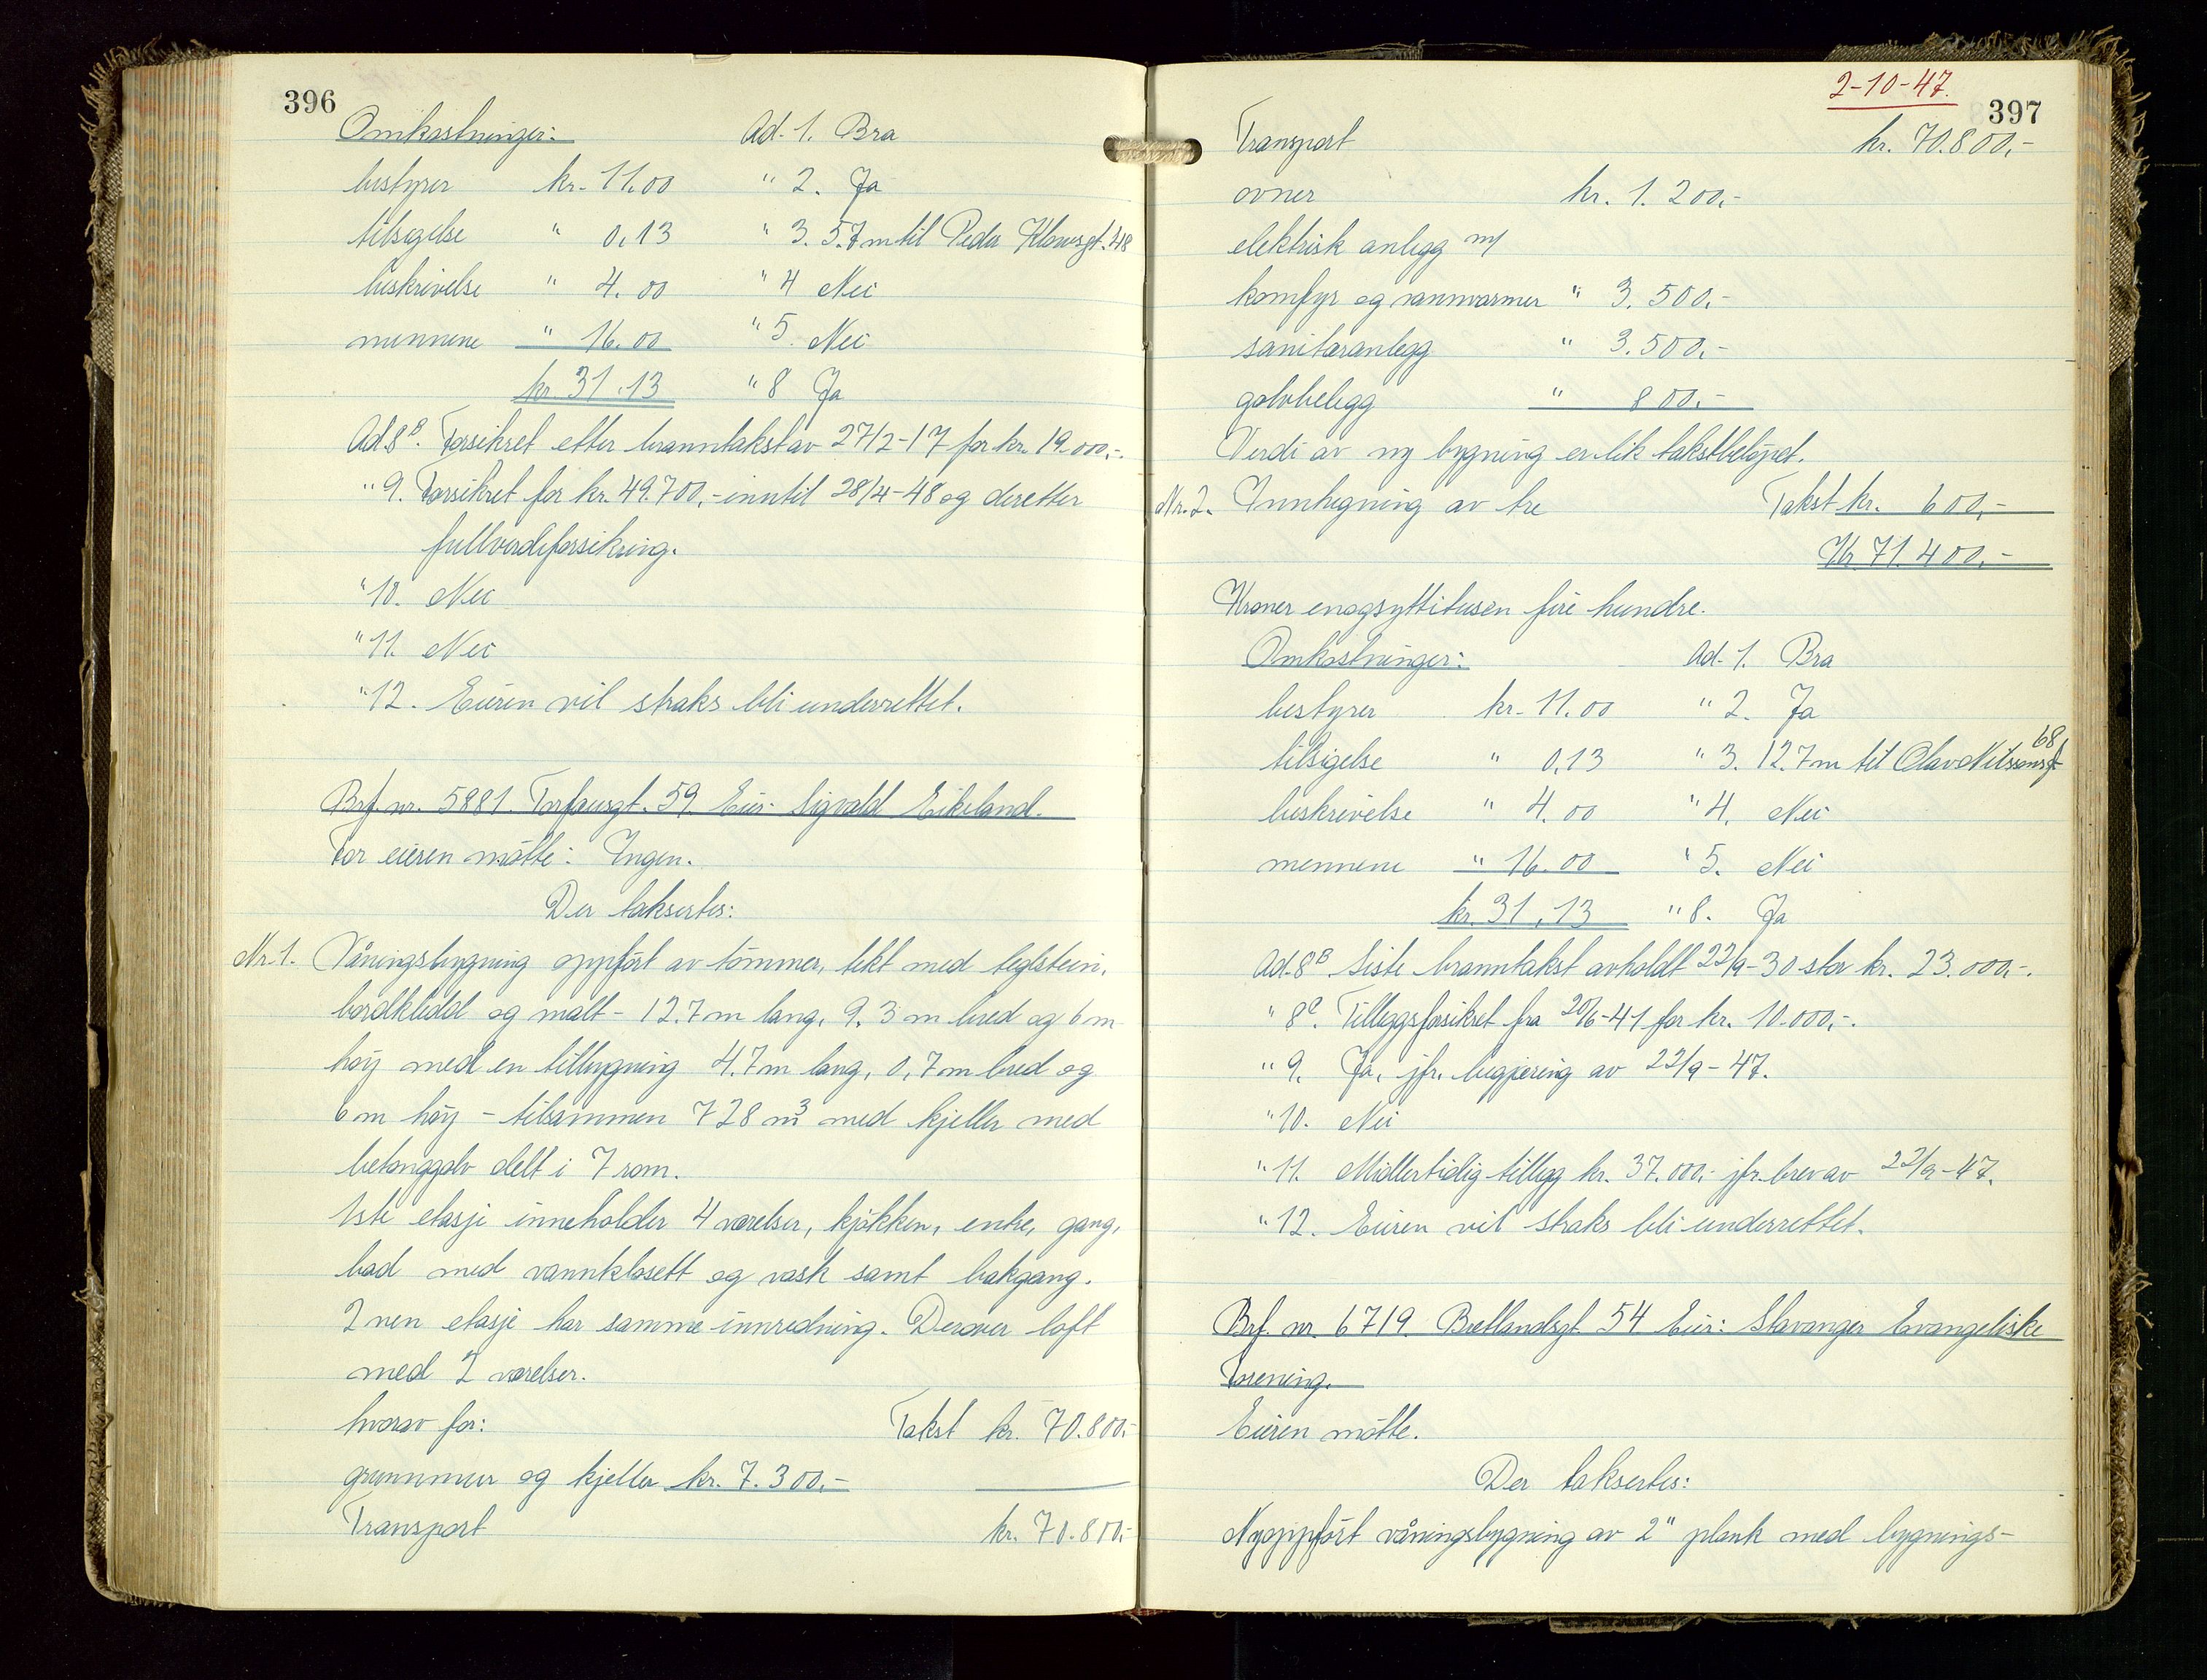 396
Omkostninger: Ad. 1. Bra
bestyrer kr. 11.00 " 2. Ja
tilsigelse " 0,13 " 3. 5.7 m til Peder Klowsgt. 48
beskrivelse " 4.00 " 4 Nei
mennene " 16.00 " 5. Nei
kr. 31.13 " 8 Ja
Ad. 8B. Forsikret etter branntakst av 27/2-17 for kr. 19.000,-.
" 9. Forsikret for kr. 49.700,- inntil 28/4-48 og deretter
fullverdiforsikring.
" 10. Nei
" 11. Nei
" 12. Eieren vil straks bli underrettet.
Brf. nr. 5881. Torfæusgt. 59. Eier: Sigvald Eikeland.
For eieren møtte: Ingen.
Der taksertes:
Nr. 1. Våningsbygning oppført av tømmer, tekt med teglstein,
bordkledd og malt - 12.7 m lang, 9.3 m bred og 6 m
høy med en tilbygning 4.7 m lang, 0,7 m bred og
6 m høy - tilsammen 728 m3 med kjeller med
betonggolv delt i 7 rom.
1ste etasje inneholder 4 værelser, kjøkken, entre, gang,
bad med vannklosett og vask samt bakgang.
2nen etasje har samme innredning. Derover loft
med 2 værelser.
hvorav for: Takst kr. 70.800.-
grunnmur og kjeller kr. 7.300,-
Transport kr. 70.800.-
2-10-47.
397
Transport kr. 70.800,-
ovner kr. 1.200,-
elektrisk anlegg m/
komfyr og vannvarmer " 3.500,-
sanitæranlegg " 3.500,-
golvbelegg " 800,-
Verdi av ny bygning er lik takstbeløpet.
Nr. 2. Innhegning av tre Takst kr. 600,-
Kr. 71.400,-
Kroner enogsyttitusen fire hundre.
Omkostninger: Ad. 1. Bra
bestyrer kr. 11.00 " 2. Ja
tilsigelse " 0,13 " 3. 12.7 m til Olav Nilssonsgt 68
beskrivelse " 4.00 " 4. Nei
mennene " 16.00 " 5. Nei
kr. 31,13 " 8. Ja
Ad. 8B Siste branntakst avholdt 22/9-30 stor kr. 23.000,-.
" 8C. Tilleggsforsikret fra 20/6-41 for kr. 10.000,-.
" 9. Ja, jfr. begjæring av 22/9-47.
" 10. Nei
" 11. Midlertidig tillegg kr. 37.000,- jfr. brev av 22/9-47.
" 12. Eieren vil straks bli underrettet.
Brf. nr. 6719. Bretlandsgt. 54 Eier: Stavanger Evangeliske
Forening.
Eieren møtte.
Der taksertes:
Nyoppført våningsbygning av 2" plank med bygnings-